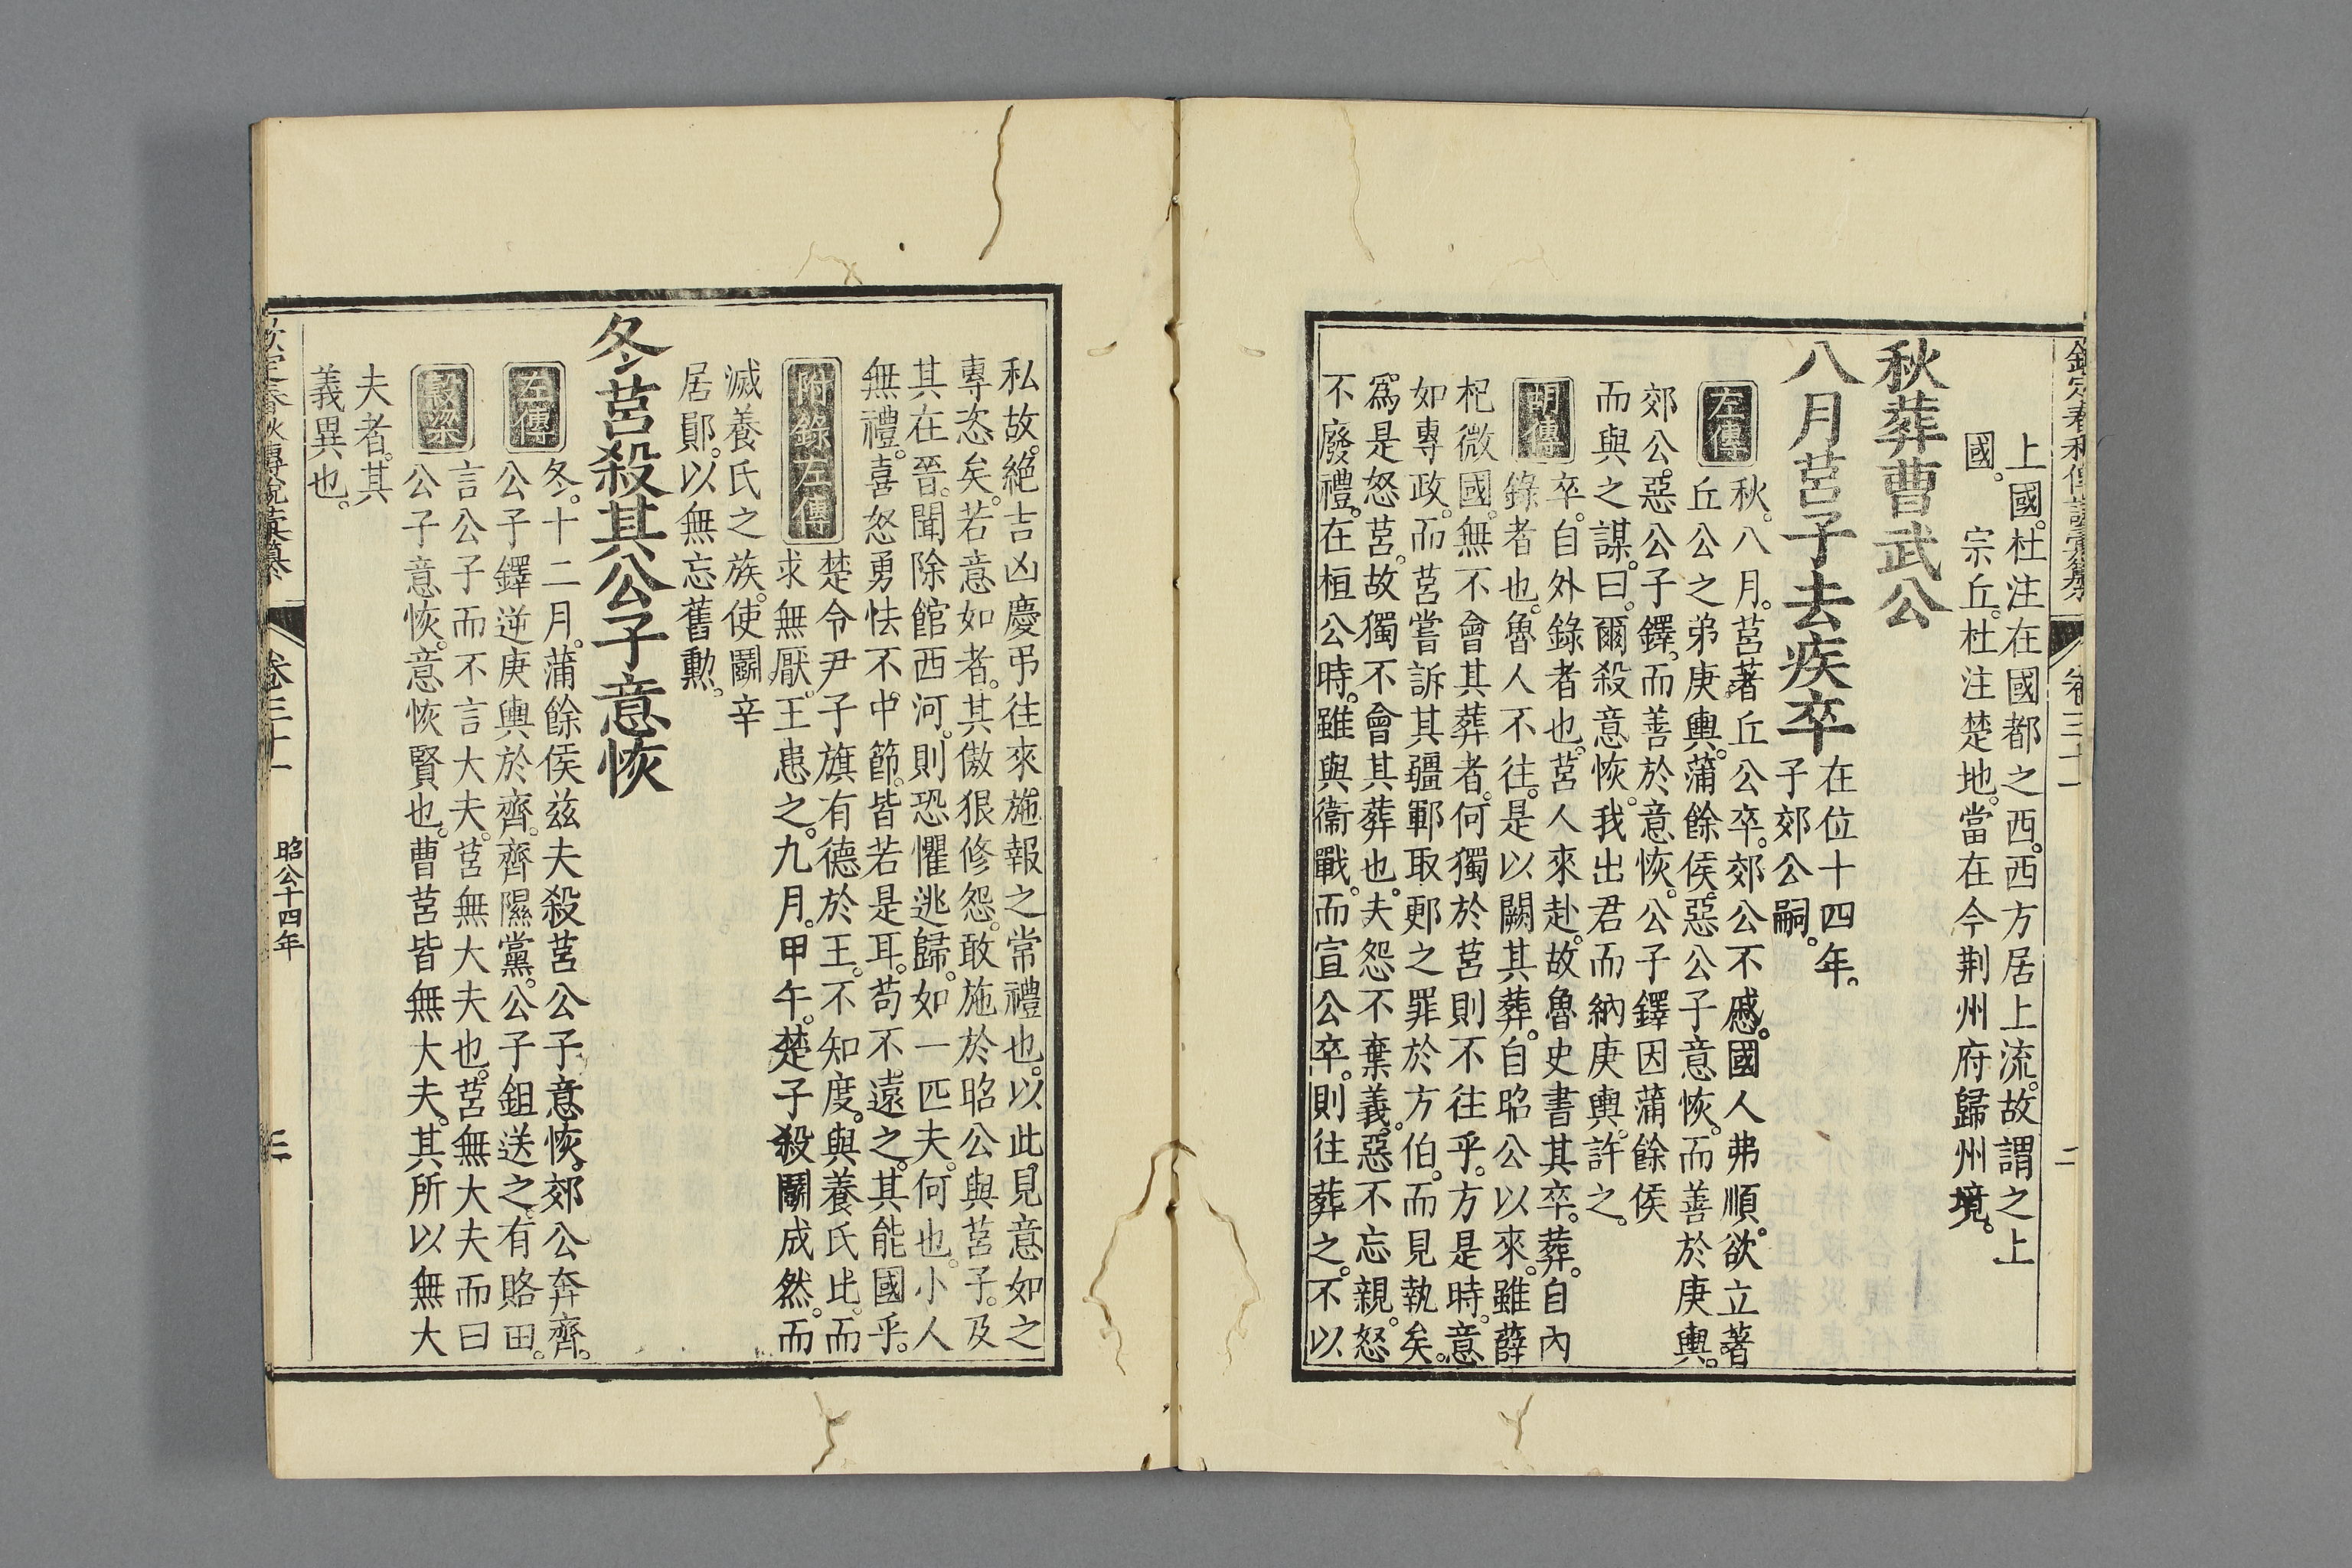 欽定春秋傳說彙纂
卷三十一
二
上國杜注在國都之西。西方居上流。故謂之上
國。
宗丘。杜注楚地。當在今荆州府歸州境。
秋葬曹武公
八月莒子去疾卒
在位十四年。
子郊公嗣。
左傳
秋。八月。莒著丘公卒。郊公不慼。國人弗順。欲立著
丘公之弟庚輿。蒲餘侯。惡公子意恢。而善於庚輿。
郊公。惡公子鐸。而善於意恢。公子鐸因蒲餘侯
而與之謀。曰。爾殺意恢。我出君而納庚輿。許之。
胡傳
卒。自外錄者也。莒人來赴。故魯史書其卒。葬。自內
錄者也。魯人不往。是以闕其葬。自昭公以來。雖薛
杞微國。無不會其葬者。何獨於莒則不往乎。方是時。意
如專政。而莒嘗訴其疆鄆取郠之罪於方伯。而見執矣。
爲是怒莒。故獨不會其葬也。夫怨不棄義。惡不忘親。怒
不廢禮。在桓公時。雖與衞戰。而宣公卒。則往葬之。不以
私故。絕吉凶慶弔往來施報之常禮也。以此見意如之
專恣矣。若意如者。其傲狠修怨。敢施於昭公與莒子。及
其在晉。聞除館西河。則恐懼逃歸。如一匹夫。何也。小人
無禮。喜怒勇怯不中節。皆若是耳。苟不遠之。其能國乎。
附錄左傳
楚令尹子旗有德於王。不知度。與養氏比。而
求無厭。王患之。九月。甲午。楚子殺鬬成然。而
滅養氏之族。使鬬辛
居鄖。以無忘舊勲。
冬莒殺其公子意恢
左傳
冬。十二月。蒲餘侯兹夫殺莒公子意恢。郊公奔齊。
公子鐸逆庚輿於齊。齊隰黨。公子鉏送之。有賂田。
穀梁
言公子而不言大夫。莒無大夫也。莒無大夫而曰
公子意恢。意恢賢也。曹莒皆無大夫。其所以無大
夫者。其
義異也。
欽定春秋傳說彙纂
卷三十一
昭公十四年
三